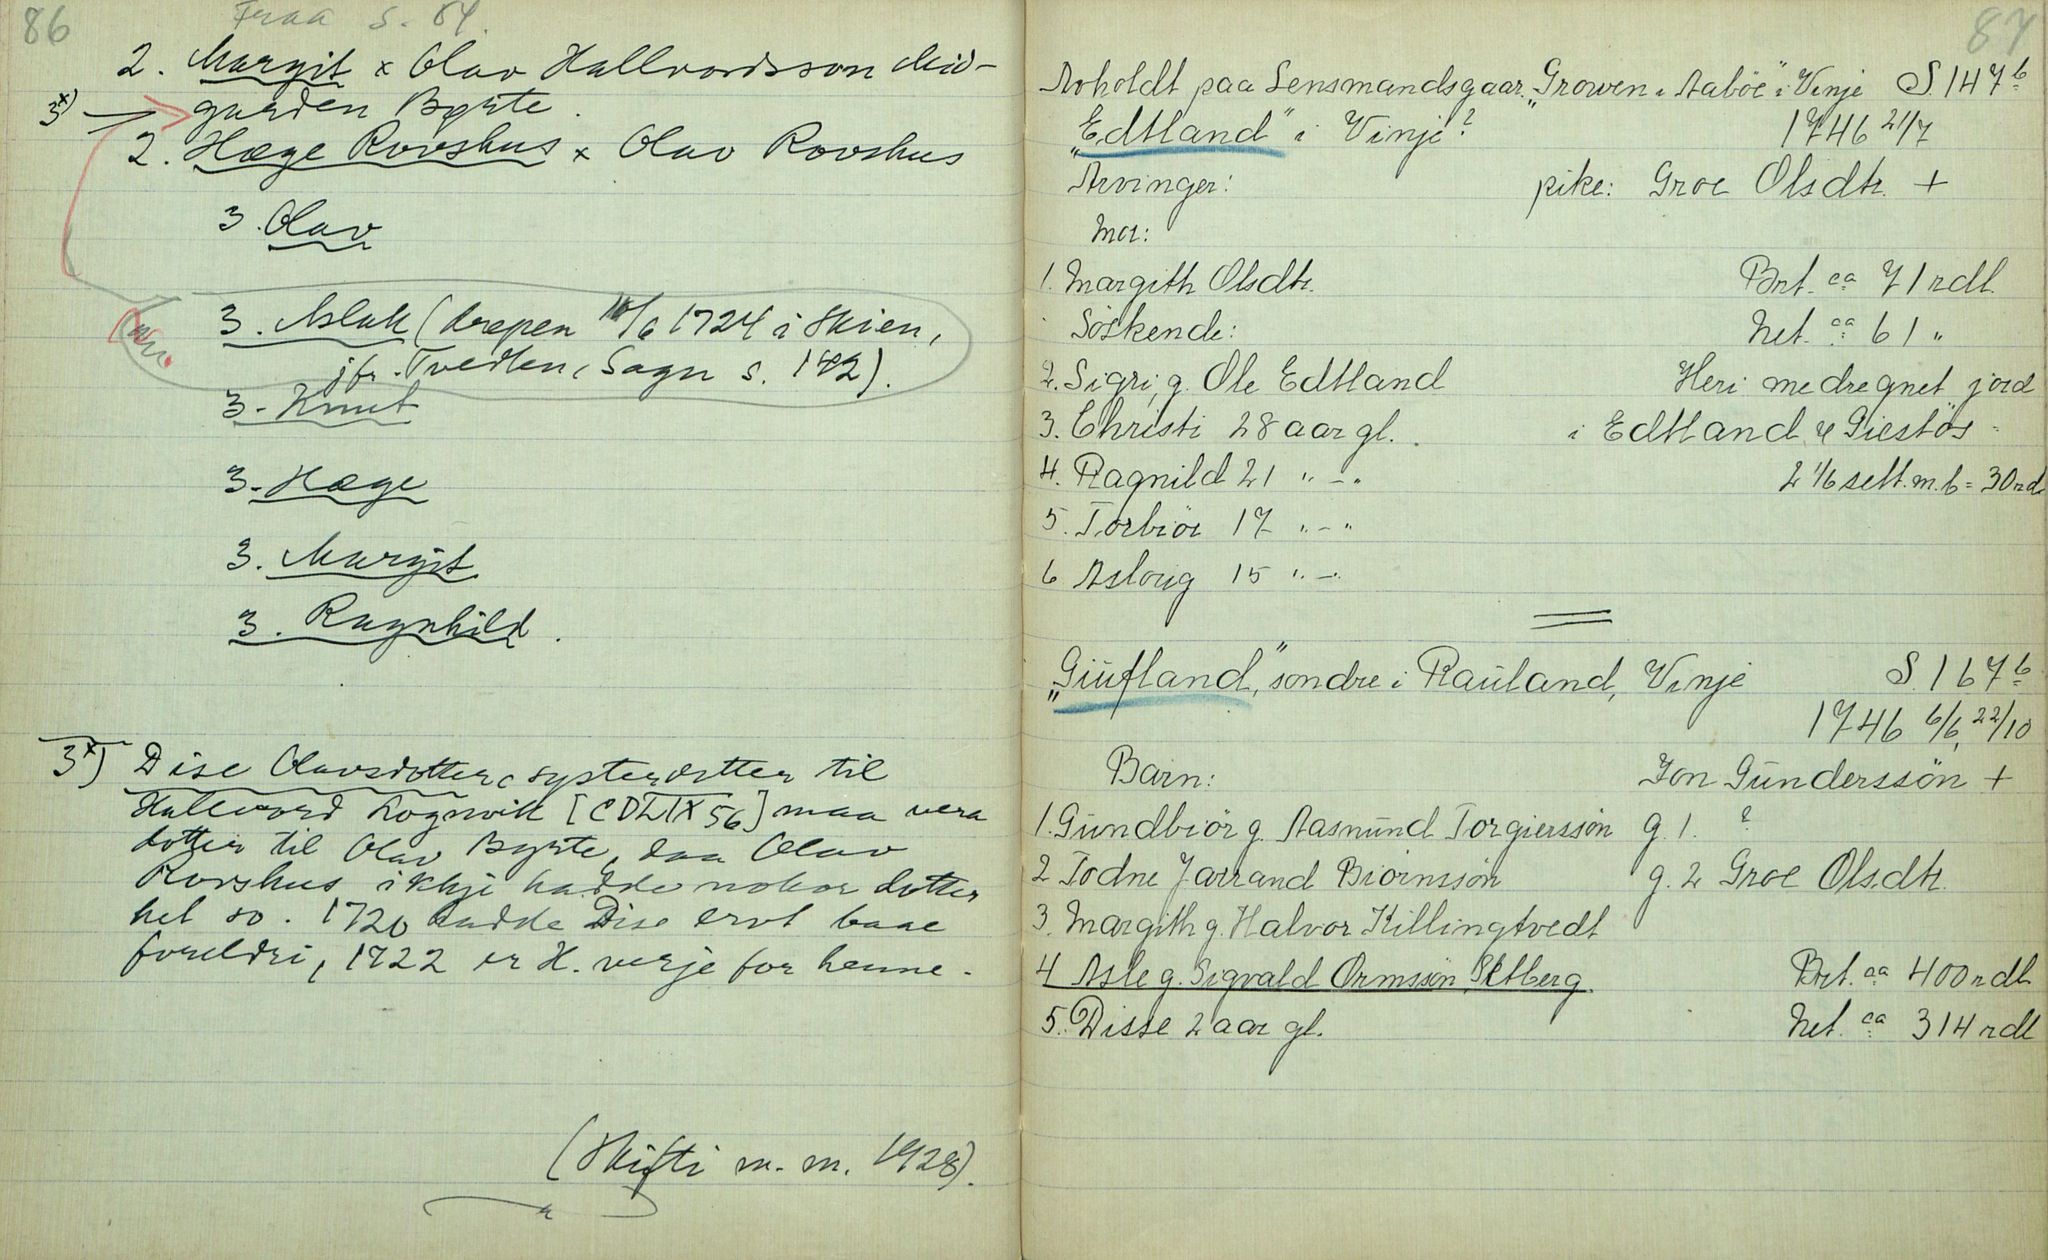 86
Fraa s. 84.
2. Margit x Olav Hallvordsson Mid-
3x) garden Byrte.
2. Hæge Rovshus x Olav Rovshus
3. Olav
3. Aslak (drepen 10/6 1724 i Skien,
jfr. Tvedten, Sagn s. 142).
3. Knut
3. Hæge
3. Margit
3. Ragnhild.
3x) Dise Olavsdotter, systerdotter til
Hallvord Lognvik [CDLIX 56] maa vera
dotter til Olav Byrte, daa Olav
Rovshus ikkje hadde nokor dotter
het so. 1720 hadde Dise ervt baae
foreldri, 1722 er H. verje for henne.
(Skifti m. m. 1928).
87
Avholdt paa Lensmandsgaar. „Growen i Aaböe" i Vinje S. 147b
„Edtland" i Vinje? 1746 21/7
Arvinger: pike: Groe Olsdtr. +
Mor:
1. Margith Olsdtr. Brt. ca 71 rdl.
Söskende: Net. ca 61 „
2. Sigri, g. Ole Edtland Heri medregnet jord
3. Christi 28 aar gl. i Edtland & Giestös =
4. Ragnild 21 „ - „ 2 1/6 sett. m. b = 30 rd.
5. Torbiör 17 „ - „
6 Asloug 15 „ - „
„Giüfland," söndre i Raüland, Vinje S. 167b
1746 6/6, 22/10
Barn: Jon Günderssön +
1. Gündbiör g. Aasmünd Torgierssön g. 1. ?
2 Todne Jarrand Biörnssön g. 2 Groe Olsdtr.
3. Margith g. Halvor Killingtvedt
4 Asle g. Sigvald Ormssön Setberg. Brt. ca 400 rdl.
5. Disse 2 aar gl. Net. ca 314 rdl